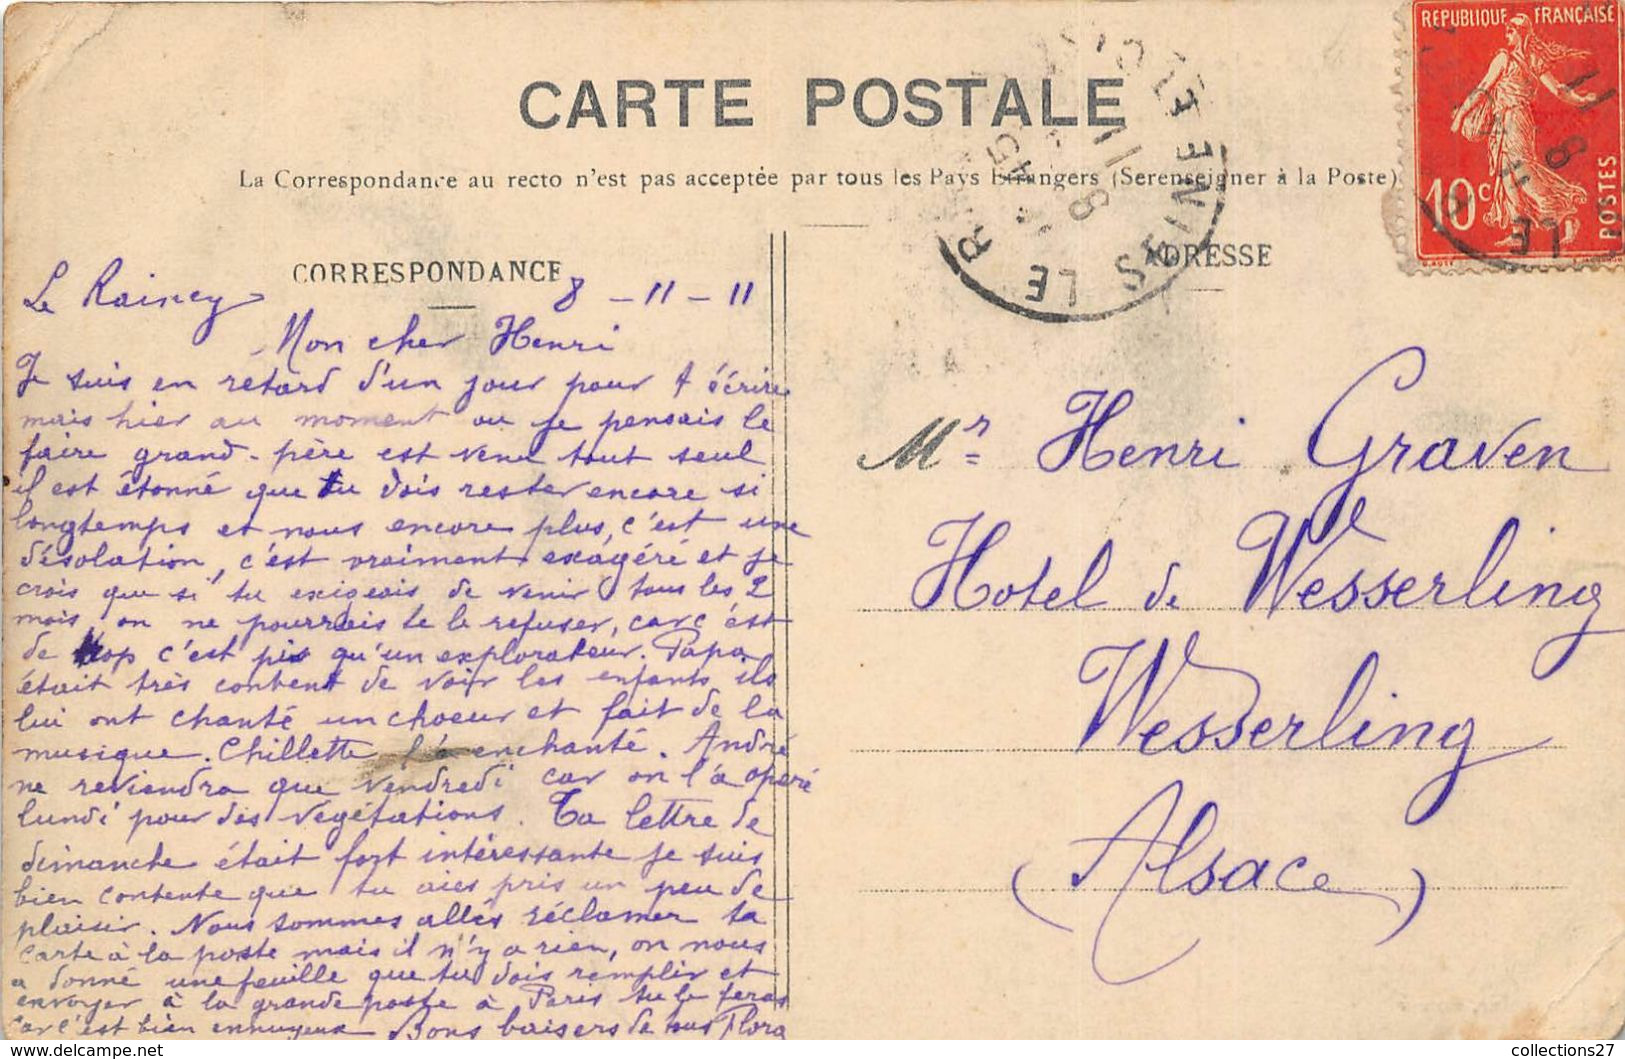 CARTE POSTALE
La Correspondance au recto n'est pas acceptée par tous les Pays Etrangers (Se renseigner à la Poste)
REPUBLIQUE FRANÇAISE
10c
POSTES
CORRESPONDANCE
Le Raincy 8-11-11
Mon cher Henri
Je suis en retard d'un jour pour t'écrire
mais hier au moment ou je pensais le
faire grand-père est venu tout seul
il est étonné que tu dois rester encore si
longtemps et nous encore plus, c'est une
désolation, c'est vraiment exagéré et je
crois que si tu exigeais de venir tous les 2
mois, on ne pourrais te le refuser, car c'est
de trop c'est pis qu'un explorateur. Papa
était très content de voir les enfants ils
lui ont chanté un choeur et fait de la
musique. Chillette l'a enchanté. André
ne reviendra que vendredi car on l'a opéré
lundi pour des végétations. Ta lettre de
dimanche était fort intéressante je suis
bien contente que tu aies pris un peu de
plaisir. Nous sommes allés réclamer ta
carte à la poste mais il n'y a rien, on nous
a donné une feuille que tu dois remplir et
envoyer à la grande poste à Paris tu le feras
car c'est bien ennuyeux Bons baisers de tous Flora
ADRESSE
Mr Henri Graven
Hotel de Wesserling
Wesserling
(Alsace)
LE R
SEINE ET OISE
8 11
LE
11
8
collections27